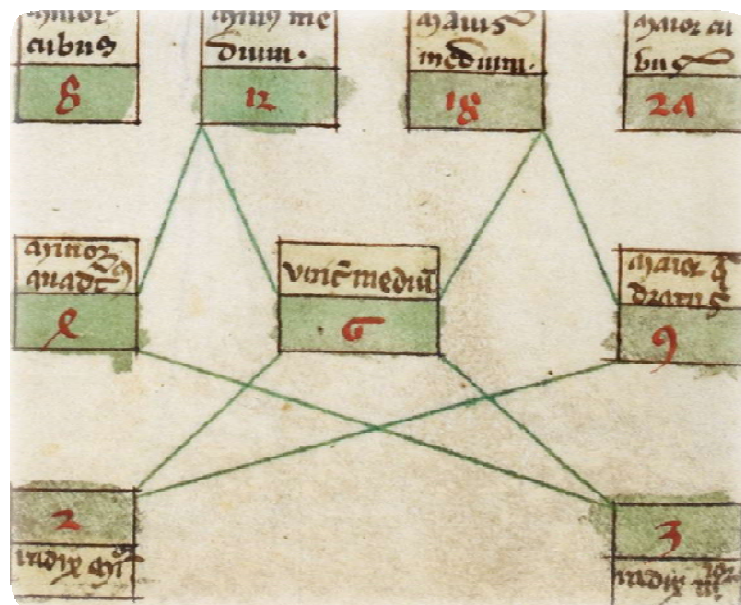 minor
cubus
8
minus me
dium.
12
maius
medium.
18
maior cu
bus
24
minor
quadr
4
unic̄ mediū
6
maior q̄
dratus
9
2
radix mi
3
radix